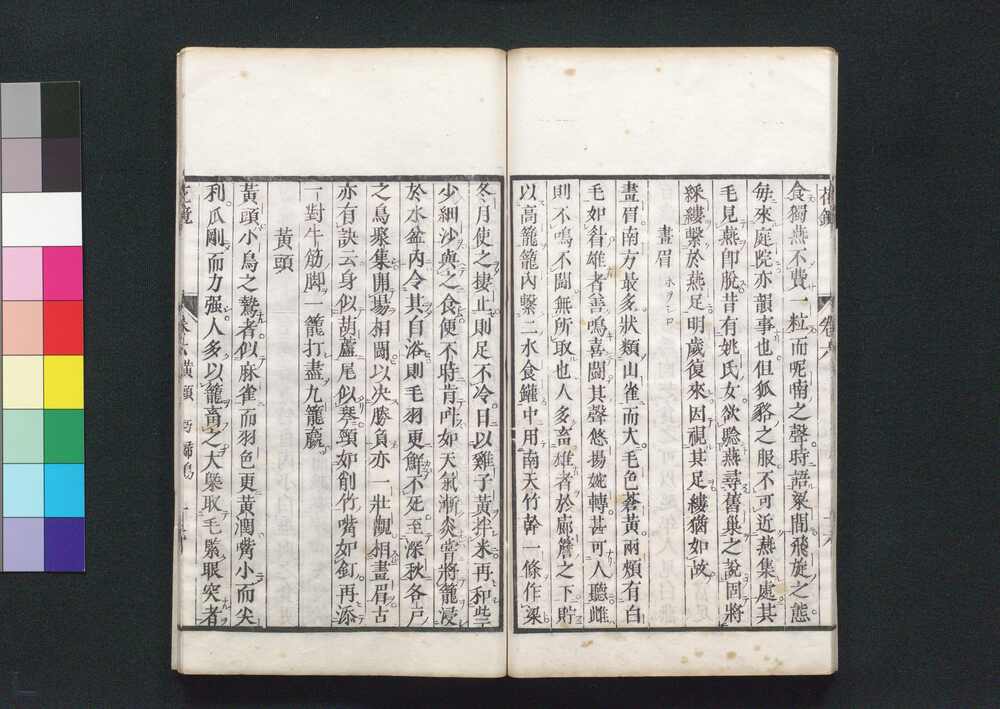 食獨燕不費一粒而呢喃之聲時語梁間飛旋之態
每來庭院亦韻事也但狐貉之服不可近燕集處其
毛見燕卽脫昔有姚氏女欲驗燕尋舊巢之說因將
綵縷繫於燕足明歲復來因視其足縷猶如故
畫眉 ホヲシロ
畫眉南方最多狀類山雀而大毛色蒼黃兩頰有白
毛如眉雄者善鳴喜鬭其聲悠揚婉轉甚可人聽雌
則不鳴不鬭無所取也人多畜雄者於廊簷之下貯
以高籠籠內繫二水食鑵中用南天竹幹一條作梁
冬月使之棲止則足不冷日以雞子黃拌米再和些
少細沙與之食便不時肯叫如天氣漸炎嘗將籠浸
於水盆內令其自浴則毛羽更鮮不死至深秋各戶
之鳥聚集開場相鬭以決勝負亦一壯觀相畫眉古
亦有訣云身似葫蘆尾似琴頸如削竹嘴如釘再添
一對牛筋脚一籠打盡九籠贏
黃頭
黃頭小鳥之鷙者似麻雀而羽色更黃濶觜小而尖
利爪剛而力强人多以籠畜之大槩取毛緊眼突者
花鏡
卷六 黃頭